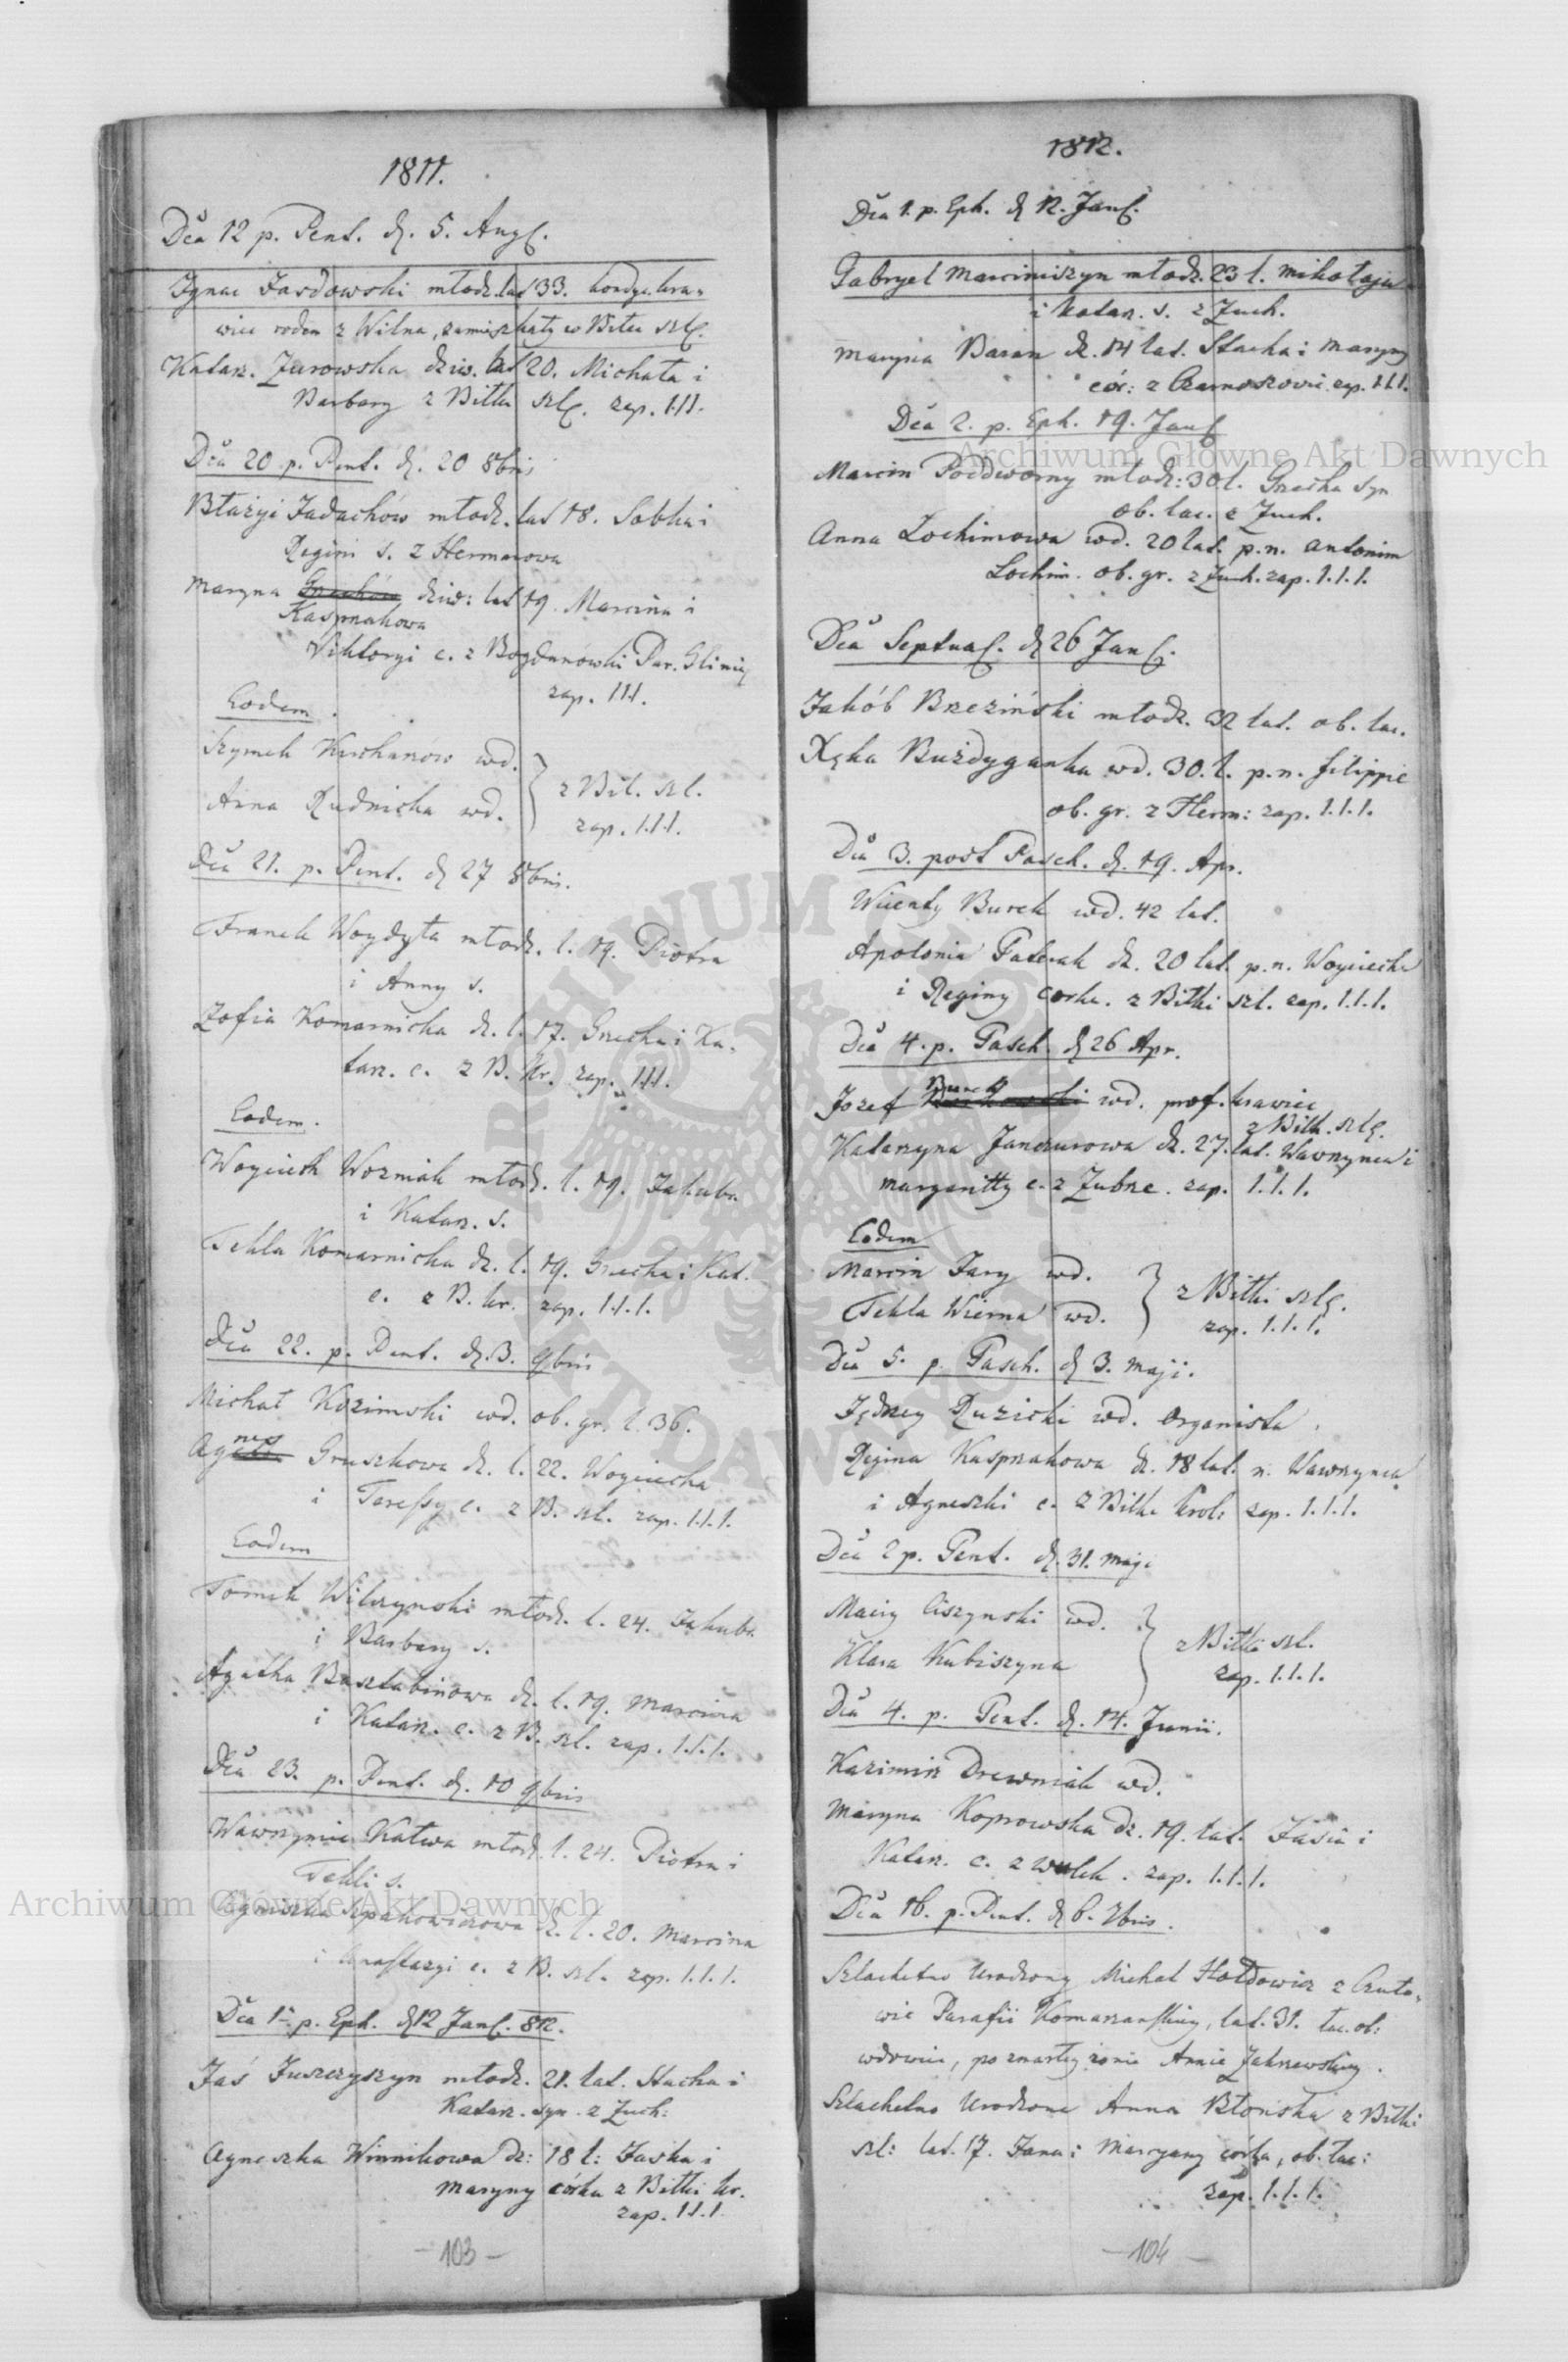 1811.
Dca 12 p. Pent. d. 5. Aug.
Ignac Jasdowski młodz. lat 33. kondyc. kra=
wiec rodem z Wilna, zamieszkały w Bitce szl.
Katarz. Zurowska dziw. lat 20. Michała i
Barbary z Bitki szl. zap. 1.1.1.
Dca 20 p. Pent. d. 20 8bris
Błażyi Jadachów młodz. lat 18. Sobka i
Regini s. z Hermanowa
Maryna Grechów dziw: lat 19. Marcina i
Kasprzakowa
Wiktoryi c. z Bogdanówki Par. Glinią
zap. 1.1.1.
Eodem.
Szymek Kuchanow wd.
Anna Rudnicka wd.
z Bit. szl.
zap. 1.1.1.
Dca 21. p. Pent. d 27 8bris.
Franek Woydyła młodz. l. 19. Piotra
i Anny s.
Zofia Komarnicka dz. l. 17. Grzecha i Ka=
tarz. c. z B. kr. zap. 1.1.1.
Eodem.
Woyciech Wozniak młodz. l. 19. Jakuba
i Katarz. s.
Tekla Komarnicka dz. l. 19. Grzecha i Kat.
c. z B. kr. zap. 1.1.1.
Dca 22. p. Pent. d. 3. 9bris
Michał Kozimski wd. ob. gr. l. 36.
nes
Ag Gruszkowa dz. l. 22. Woyciecha
i Teressy c. z B. szl. zap. 1.1.1.
Eodem
Tomek Wilczynski młodz. l. 24. Jakuba
i Barbary s.
Agatka Basztabinowa dz. l. 19. Marcina
i Katarz. c. z B. szl. zap. 1.1.1.
Dca 23. p. Pent. d. 10 9bris
Wawrzyniec Katwa młodz. l. 24. Piotra i
Tekli s.
Agniszka Szpakowiczowa dz. l. 20. Marcina
i Anastazyi c. z B. szl. zap. 1.1.1.
Dca 1. p. Eph. d 12 Jan. 812.
Jaś Juszczyszyn młodz. 21. lat. Stacha i
Katarz. syn. z Zuch:
Agneszka Winnikowa dz: 18 l: Jaska i
Maryny córka z Bitki kr.
zap. 1.1.1
- 103 -
1812.
Dca 1. p. Eph. d 12. Jan.
Gabryel Marciniszyn młodz. 23 l. Mikołaja
i Katarz. s. z Zuch.
Marysia Baran dz. 14 lat. Stacha i Maryny
cór: z Czarnoszowic zap. 1.1.1.
Dca 2. p. Eph. 19. Jan
Marcin Podworny młodz: 30 l. Grzecha syn
ob. łac. z Zuch.
Anna Lochimowa wd. 20 lat. p. n. Antonim
Lochim. ob. gr. z Zuch. zap. 1.1.1.
Dca Septua. d 26 Jan.
Jakób Brzeziński młodz. 32 lat. ob. łac.
Xęka Buzdyganka wd. 30. l. p. n. filippie
ob. gr. z Herm: zap. 1.1.1.
Dca 3. post Pasch. d. 19. Apr.
Wicenty Burek wd. 42 lat.
Apolonia Paterak dz. 20 lat. p. n. Woyciecha
i Reginy corka. z Bitki szl. zap. 1.1.1.
Dca 4. p. Pasch. d 26 Apr.
Jozef wd. prof. krawiec
z Bitk. szlę.
Katarzyna Janczurowa dz. 27. lat. Wawrzynca i
margaritty c. z Zubrze. zap. 1.1.1.
Eodem
Marcin Jary wd.
Tekla Wierna wd.
z Bitki szlę.
zap. 1.1.1.
Dca 5. p. Pasch. d 3. Maji.
Jędrzey Ruzicki wd. organista
Regina Kasprzakowa dz. 18 lat. n. Wawrzynca
i Agneszki c. z Bitki krol: zap. 1.1.1.
Dca 2 p. Pent. d. 31. Maji
Maciy Ciszynski wd.
Klara Kubiszyna
z Bitki szl.
zap. 1.1.1.
Dca 4. p. Pent. d. 14. Junii.
Kazimirz Drewniak wd.
Maryna Koprowska dz. 19. lat. Jasia i
Katarz. c. z wulek. zap. 1.1.1.
Dca 16. p. Pent. d 6. 7bris.
Szlachetno Urodzony Michał Hołdowicz z Czuto=
wic Parafii Komarzanskiey, lat. 31. łac. ob:
wdowiec, po zmarłey żonie Annie Zakrzewskiey.
Szlachetno Urodzona Anna Błońska z Bitki
szl: lat. 17. Jana i Maryany córka, ob. łac:
zap. 1.1.1.
- 104 -
Archiwum Główne Akt Dawnych
Archiwum Główne Akt Dawnych
ARCHIWUM GŁÓWNE AKT DAWNYCH